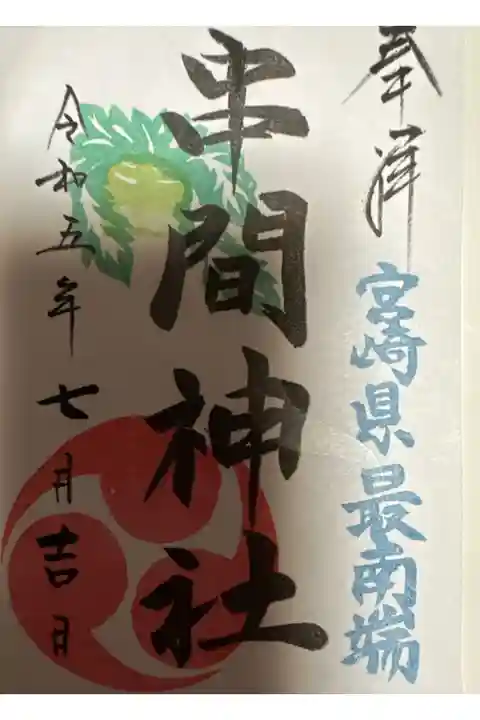 奉拝
宮崎県最南端
串間神社
令和五年七月吉日